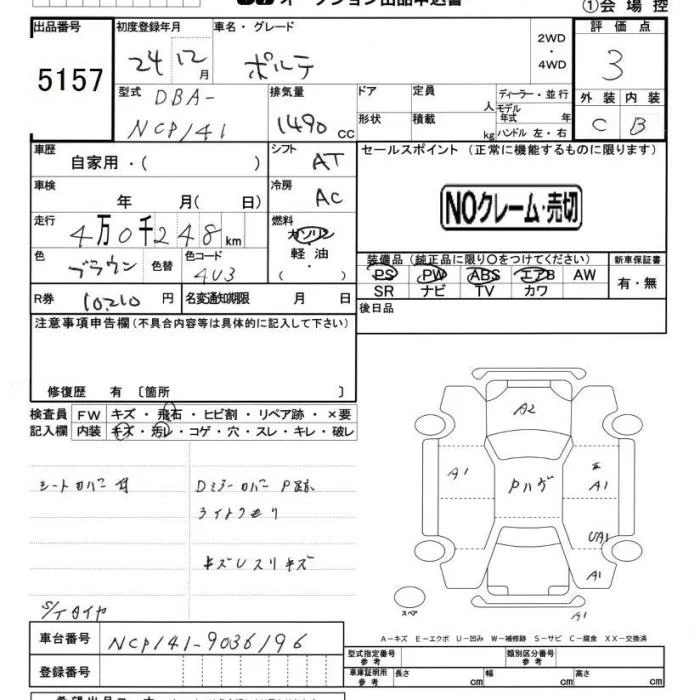 オークション出品申込書
①会場控
出品番号 5157
初度登録年月 24 12月
車名・グレード ポルテ
2WD・4WD
評価点 3
型式 DBA-NCP141
排気量 1490 cc
ドア 定員 人
形状 積載 kg
ディーラー・並行
モデル年式 年
ハンドル 左・右
外装 C 内装 B
車歴 自家用・( )
シフト AT
セールスポイント (正常に機能するものに限ります)
車検 年 月( 日)
冷房 AC
NOクレーム・売切
走行 4万0千248km
燃料 ガソリン 軽油 ( ・ )
色 ブラウン 色替 色コード 4U3
装備品 (純正品に限り○をつけてください) 新車保証書
PS PW ABS エアB AW 有・無
SR ナビ TV カワ
R券 10210 円 名変通知期限 月 日
後日品
注意事項申告欄(不具合内容等は具体的に記入して下さい)
修復歴 有 〔箇所 〕
検査員 FW キズ・飛石・ヒビ割・リペア跡・×要
記入欄 内装 キズ・汚レ・コゲ・穴・スレ・キレ・破レ
A2
シートカバー 付 Dミラーカバー P跡
ライトクモリ
キズUスリキズ
A1 Pハゲ A1
UA1
A1
スペア
S/Tタイヤ
A-キズ E-エクボ U-凹み W-補修跡 S-サビ C-腐食 XX-交換済
車台番号 NCP141-9036196
型式指定番号 参考 類別区分番号 参考
登録番号
車庫証明用 参考 長さ cm 幅 cm 高さ cm